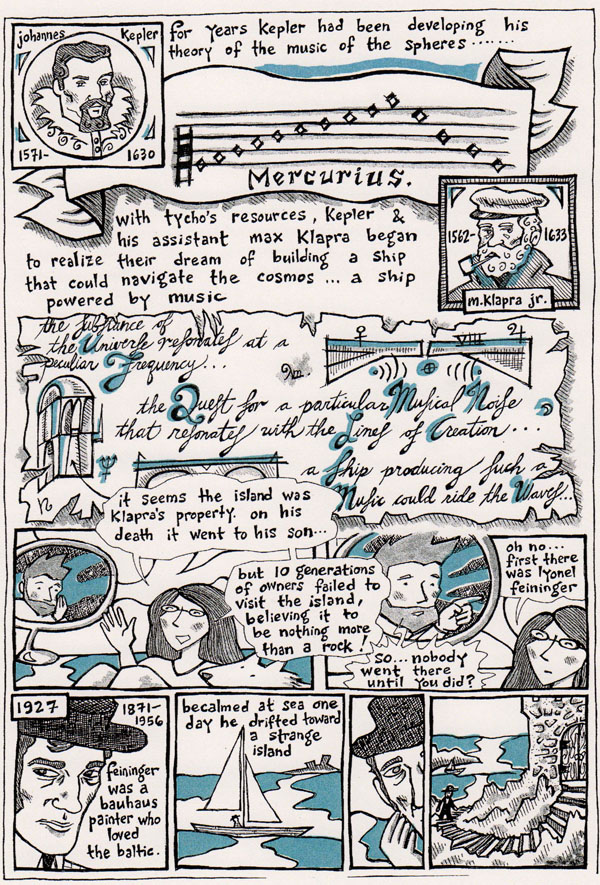 johannes Kepler
1571- 1630
for years Kepler had been developing his
theory of the music of the spheres.......
Mercurius.
with tycho's resources, Kepler &
his assistant max Klapra began
to realize their dream of building a ship
that could navigate the cosmos... a ship
powered by music
1562- 1633
m.Klapra jr.
the Subſtance of
the Univerſe reſonateſ at a
peculiar Frequency...
the Queſt for a particular Muſical Noiſe
that reſonateſ with the Lineſ of Creation....
a Ship producing ſuch a
Muſic could ride the Waveſ...
it seems the island was
Klapra's property. on his
death it went to his son...
but 10 generations
of owners failed to
visit the island,
believing it to
be nothing more
than a rock!
SO... nobody
went there
until you did?
oh no...
first there
was lyonel
feininger
1927
1871-
1956
feininger
was a
bauhaus
painter who
loved
the baltic.
becalmed at sea one
day he drifted toward
a strange
island